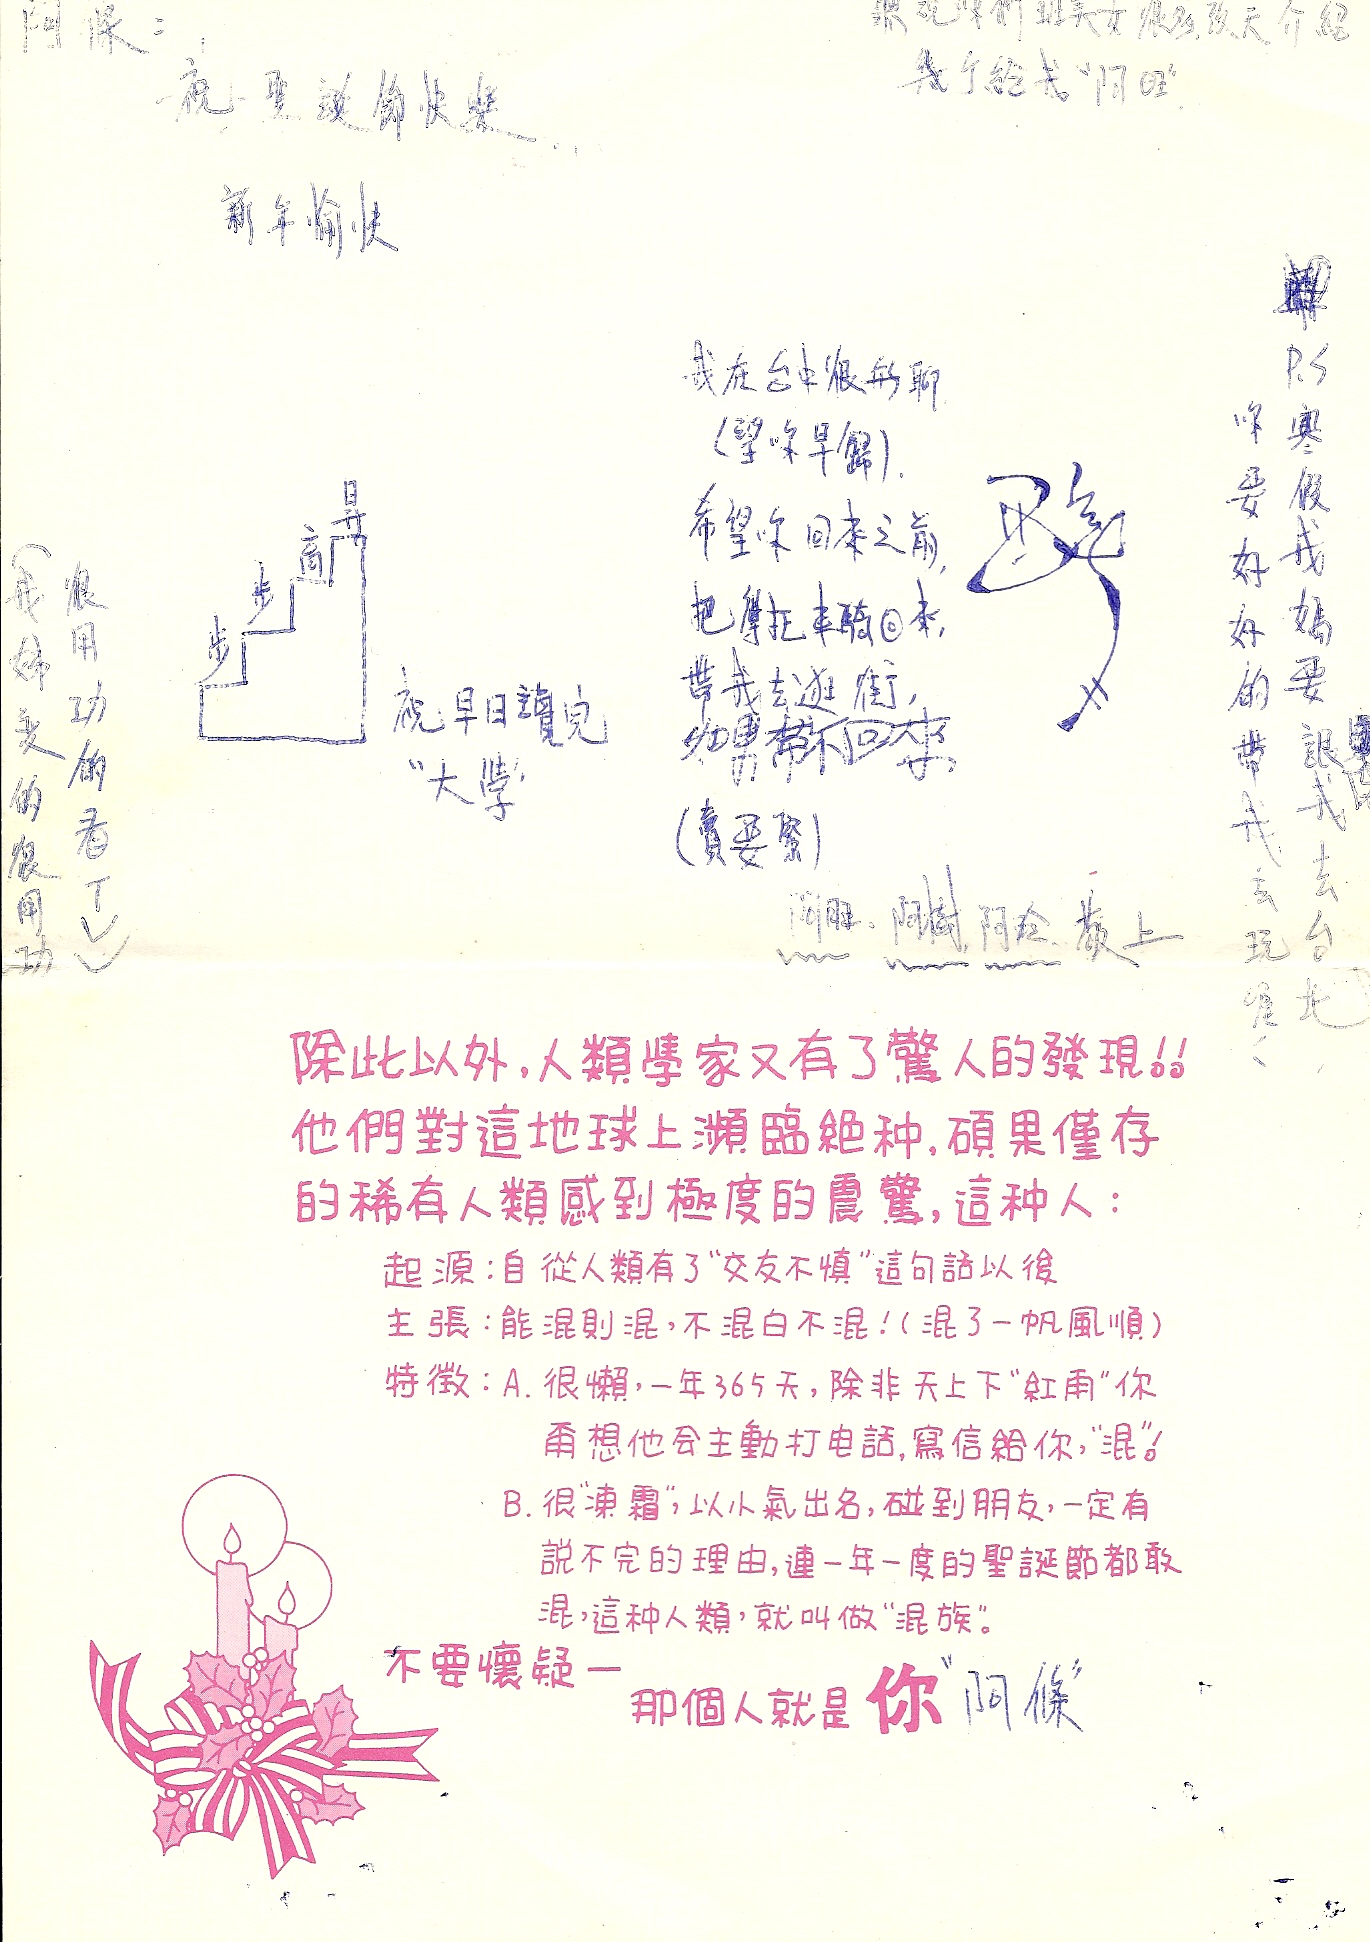 阿條：
祝 聖誕節快樂
新年愉快
聽說你們班美女很多改天介紹
幾個給我"阿旺"
步步高昇
祝早日讀完
"大學"
我在台中很無聊
(望你早歸).
希望你回來之前,
把摩托車騎回來,
帶我去逛街,
如果帶不回來,
(賣要緊)
阿旺、阿樹、阿玲 敬上
P.S 寒假我媽要讓我去台北
你要好好的帶我去玩喔、
很用功的看ㄒ
(我姊美的很用功
除此以外,人類學家又有了驚人的發現!!
他們對這地球上瀕臨絕种,碩果僅存
的稀有人類感到極度的震驚,這种人：
起源：自從人類有了"交友不慎"這句話以後
主張：能混則混,不混白不混!(混了一帆風順)
特徵：A. 很懶,一年365天,除非天上下"紅雨"你
甭想他会主動打电話,寫信給你,"混"!
B. 很"凍霜",以小氣出名,碰到朋友,一定有
說不完的理由,連一年一度的聖誕節都敢
混,這种人類,就叫做"混族"。
不要懷疑一
那個人就是你"阿條"